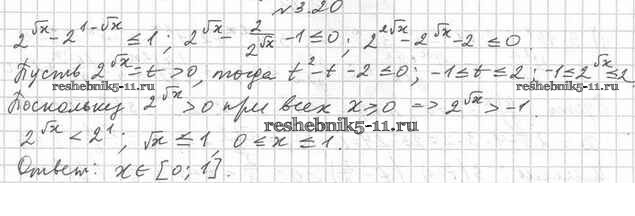 №3.20
2^√x - 2^(1-√x) ≤ 1 ; 2^√x - 2/2^√x - 1 ≤ 0 ; 2^(2√x) - 2^√x - 2 ≤ 0.
Пусть 2^√x = t > 0, тогда t² - t - 2 ≤ 0 ; -1 ≤ t ≤ 2 ; -1 ≤ 2^√x ≤ 2.
reshebnik5-11.ru
Поскольку 2^√x > 0 при всех x ≥ 0 => 2^√x > -1.
reshebnik5-11.ru
2^√x < 2^1 ; √x ≤ 1, 0 ≤ x ≤ 1.
Ответ: x ∈ [0; 1].